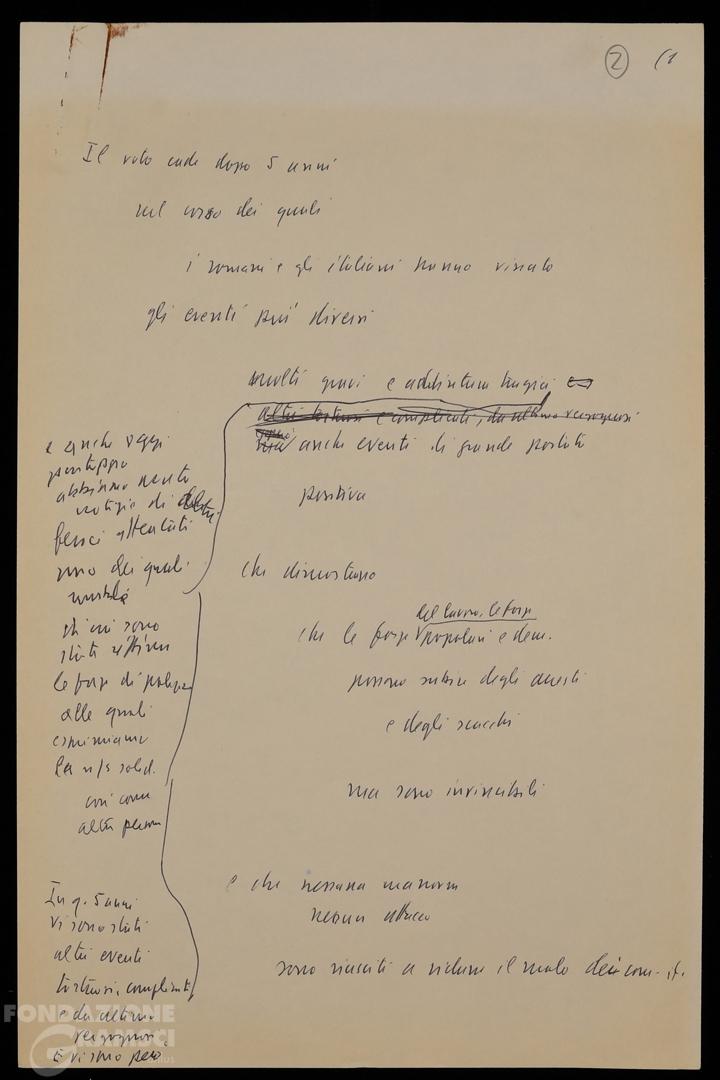 2 (1
Il voto cade dopo 5 anni
nel corso dei quali
i romani e gli italiani hanno vissuto
gli eventi più diversi
molti gravi e addirittura tragici
altri tortuosi e complicati, da ultimo vergognosi
anche eventi di grande portata
positiva
che dimostrano
del lavoro, le forze
che le forze popolari e dem.
possono subire degli arresti
e degli scacchi
ma sono invincibili
e che nessuna manovra
nessun attacco
sono riusciti a ridurre il ruolo dei com. it.
e anche oggi
purtroppo
abbiamo avuto
notizia di
feroci attentati
uno dei quali
mortale
di cui sono
state vittime
le forze di polizia
alle quali
esprimiamo
la n/s solid.
così come
altre persone
In q. 5 anni
vi sono stati
altri eventi
tortuosi, complicati
e da ultimo
vergognosi.
E vi sono però
FONDAZIONE
GRAMSCI